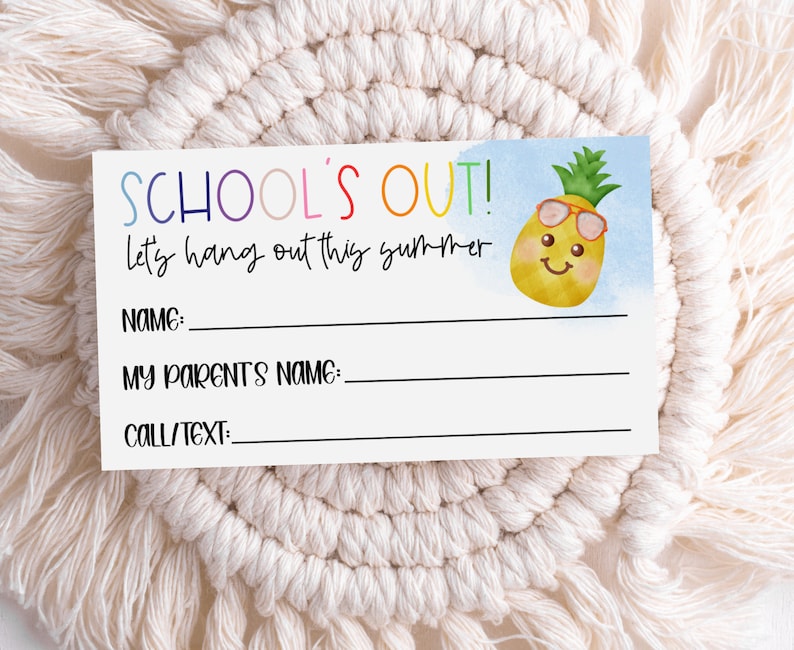 SCHOOL'S OUT!
let's hang out this summer
NAME:
MY PARENT'S NAME:
CALL/TEXT: